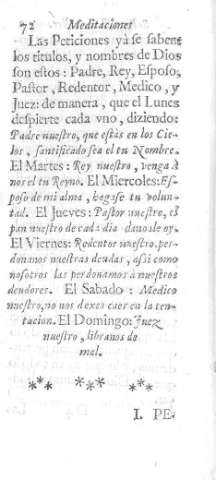 72 Meditaciones
Las Peticiones yà se saben:
los titulos, y nombres de Dios
son estos: Padre, Rey, Esposo,
Pastor, Redentor, Medico, y
Juez: de manera, que el Lunes
despierte cada vno, diziendo:
Padre nuestro, que estàs en los Cie-
los, santificado sea el tu Nombre.
El Martes: Rey nuestro, venga à
nos el tu Reyno. El Miercoles: Es-
poso de mi alma, hagase tu volun-
tad. El Jueves: Pastor nuestro, el
pan nuestro de cada dia danosle oy.
El Viernes: Redentor nuestro, per-
donanos nuestras deudas, assi como
nosotros las perdonamos à nuestros
deudores. El Sabado: Medico
nuestro, no nos dexes caer en la ten-
tacion. El Domingo: Juez
nuestro, libranos de
mal.
*** *** ***
I. PE-